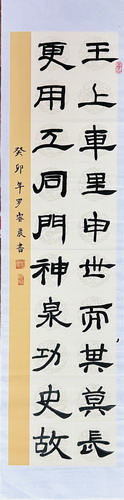 王上車里申世而其莫長
更用工同門神泉功史故
癸卯年罗睿晨书